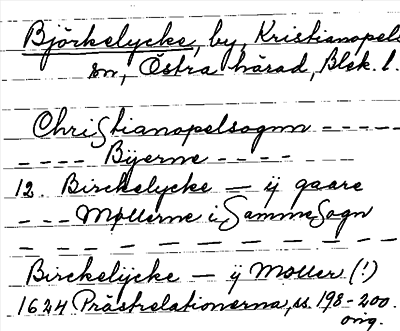 Björkelycke, by, Kristianopels
sn, Östra härad, Blek. l.
Christianopelsognn - - - - -
- - - - Byerne - - - -
12. Birckelycke — ij gaare
- - - Møllerne i Samme Sogn
- - - - - - - - -
Birckelycke — ij Møller (!)
1624 Prästrelationerna, ss. 198-200.
orig.